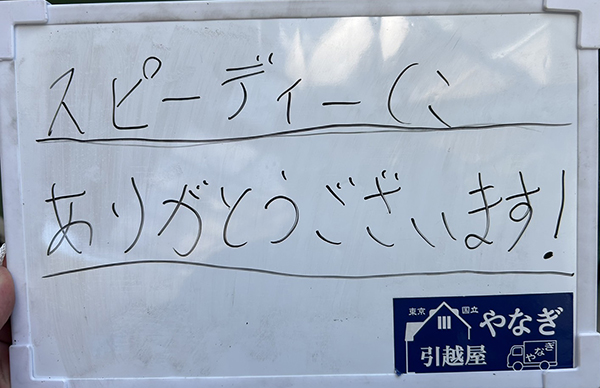 スピーディーに
ありがとうございます!
東京 国立 やなぎ
引越屋 やなぎ